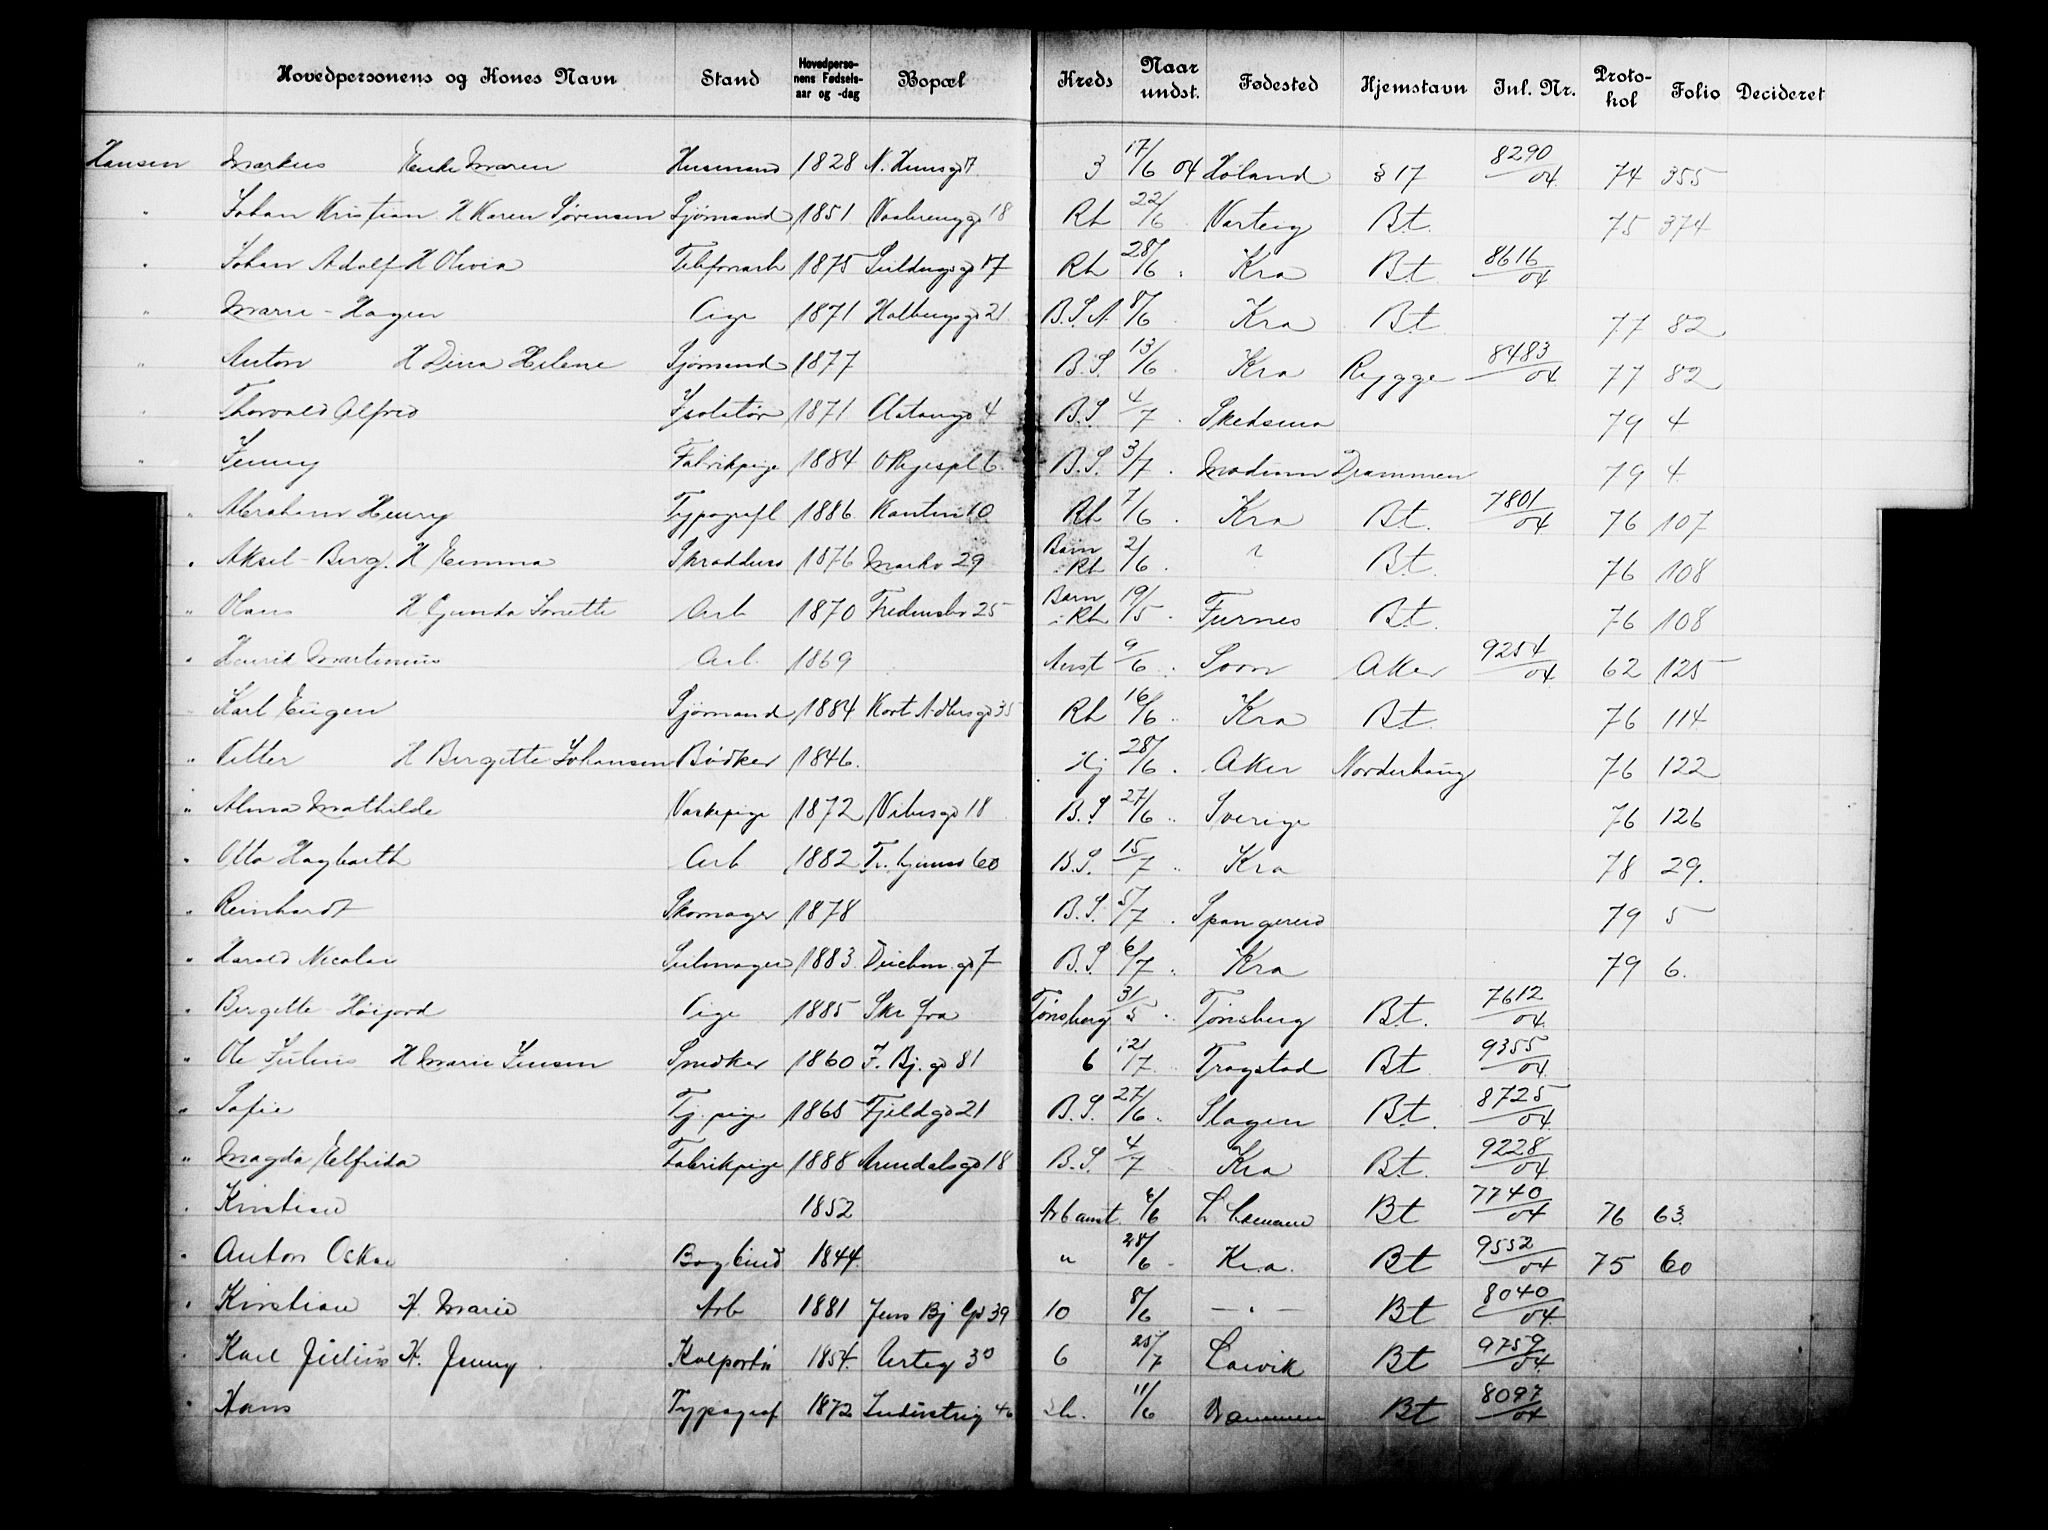 Hovedpersonens og Kones Navn Stand Hovedperso-nens Fødsels-aar og -dag Bopæl Kreds Naar undst. Fødested Hjemstavn Inl. Nr. Proto-hol Folio Decideret
Hansen Markus Enke Maren Husmand 1828 17 3 17/6 04 Høland § 17 8290/04 74 355
" Johan Kristian H Karen Sørensen Sjømand 1851 Vaalerengg 18 Rh 22/6 Varteig Bt. 75 374
" Johan Adolf H Olivia Telefonarb 1875 17 Rh 28/6 " Kra Bt 8616/04
" Marie - Hagen Pige 1871 Holbergsgd 21 B.S.A 8/6 Kra Bt 77 82
" Anton H Dina Helene Sjømand 1877 B.S. 13/6 Kra Rygge 8483/04 77 82
" Thorvald Alfred Isolatør 1871 4 B.S 4/7 Skedsmo 79 4
" Jenny Fabrikpige 1884 O Ryespl 6 B.S. 3/7 Modum Drammen 79 4
" Abraham Henry Typografl 1886 10 Rh 7/6 Kra Bt. 7801/04 76 107
" Aksel - Berg. H Emma Skrædders 1876 Markv 29 Barn i Rh 2/6 ? Bt. 76 108
" Olaus H Gunda Jonette Arb 1870 Fredensbv 25 Barn i Rh 19/5 Furnes Bt. 76 108
" Henrik Martinius Arb. 1869 9/6 Soon Aker 9254/04 62 125
" Karl Eugen Sjømand 1884 Kort Adlersgd 35 Rh 16/6 " Kra Bt. 76 114
" Petter H Birgitte Johansen Bødker 1846 Hj 28/6 Aker Norderhaug 76 122
" Alma Mathilde Vaskepige 1872 Vibesgd 18 B.S 27/6 " Sverige 76 126
" Otto Hagbarth Arb 1882 Tr.hjemsv 60 B.S. 15/7 " Kra 78 29.
" Reinhardt Skomager 1878 B.S. 5/7 Spangereid 79 5
" Harald Nicolai Seilmager 1883 Deichm.gd 7 B.S. 6/7 " Kra 79 6.
" Birgitte - Høigord Pige 1885 Skr fra Tønsberg 31/5 " Tønsberg Bt. 7612/04
" Ole Julius H Marie Jensen Snedker 1860 J. Bj. gd 81 6 12/7 Trøgstad Bt. 9355/04
" Sofie Tj. pige 1865 Fjeldgd 21 B.S. 27/6 Slagen Bt. 8725/04
" Magda Elfrida Fabrikpige 1888 Arendalsgd 18 B.S. 4/7 Kra Bt. 9228/04
" Kristian 1852 Arbanst. 6/6 Bt 7740/04 76 63
" Anton Oskar Bogbind 1844 " 28/6 Kra. Bt 9552/04 75 60
" Kristian H. Marie Arb 1881 Jens Bj Gd 39 10 8/6 — " — Bt 8040/04
" Karl Julius H. Jenny Kolportør 1854 Urteg 30 6 25/7 Larvik Bt 9759/04
" Hans Typograf 1872 Industrig 46 11/6 Drammen Bt 8097/04